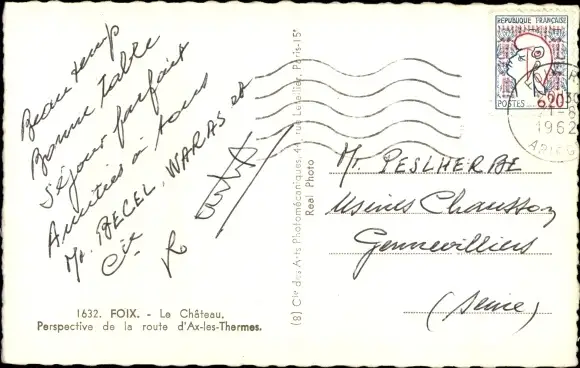 Beau temp
Bonne table
Séjour parfait
Amitiés à tous
Mr. BECEL, WARAS et
Cie
1632. FOIX. - Le Château.
Perspective de la route d'Ax-les-Thermes.
(8) Cie des Arts Photomécaniques, 44, rue Letellier, Paris-15e
Real Photo
REPUBLIQUE FRANÇAISE
POSTES 0,20
1962
Mr. PESLHERBE
Usines Chausson
Gennevilliers
(Seine)